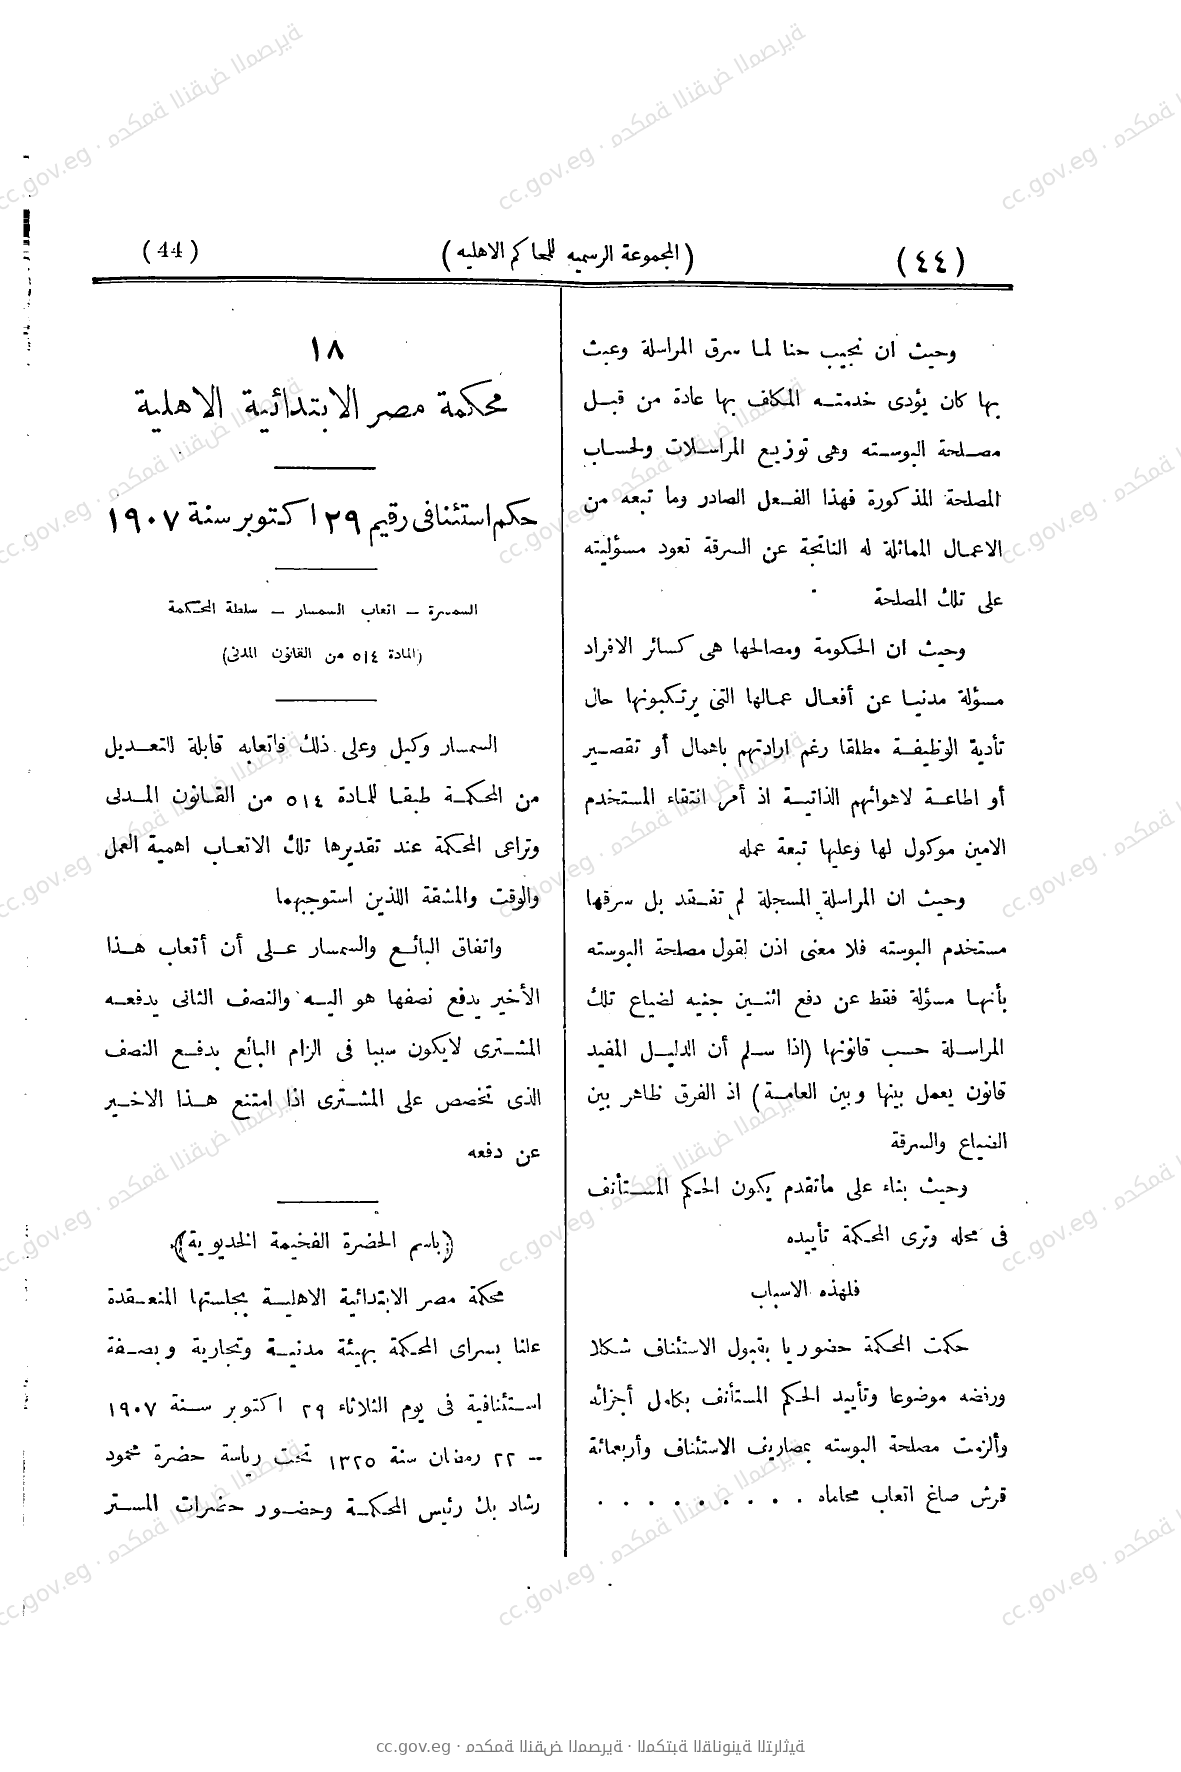 (٤٤)
(المجموعة الرسميه للمحاكم الاهليه)
(44)
وحيث ان نجيب حنا لما سرق المراسلة وعبث
بها كان يؤدى خدمته المكلف بها عادة من قبل
مصلحة البوسته وهى توزيع المراسلات ولحساب
المصلحة المذكورة فهذا الفعل الصادر وما تبعه من
الاعمال المماثلة له الناتجة عن السرقة تعود مسؤليته
على تلك المصلحة
وحيث ان الحكومة ومصالحها هى كسائر الافراد
مسؤلة مدنيا عن أفعال عمالها التى يرتكبونها حال
تأدية الوظيفة مطلقا رغم ارادتهم باهمال أو تقصير
أو اطاعة لاهوائهم الذاتية اذ أمر انتقاء المستخدم
الامين موكول لها وعليها تبعة عمله
وحيث ان المراسلة المسجلة لم تفقد بل سرقها
مستخدم البوسته فلا معنى اذن لقول مصلحة البوسته
بأنها مسؤلة فقط عن دفع اثنين جنيه لضياع تلك
المراسلة حسب قانونها (اذا سلم أن الدليل المفيد
قانون يعمل بينها وبين العامة) اذ الفرق ظاهر بين
الضياع والسرقة
وحيث بناء على ماتقدم يكون الحكم المستأنف
فى محله وترى المحكمة تأييده
فلهذه الاسباب
حكمت المحكمة حضوريا بقبول الاستئناف شكلا
ورفضه موضوعا وتأييد الحكم المستأنف بكامل أجزائه
وألزمت مصلحة البوسته بمصاريف الاستئناف وأربعمائة
قرش صاغ اتعاب محاماه . . . . . . . . .
١٨
محكمة مصر الابتدائية الاهلية
حكم استئنافى رقيم ٢٩ اكتوبر سنة ١٩٠٧
السمسرة – اتعاب السمسار – سلطة المحكمة
(المادة ٥١٤ من القانون المدنى)
السمسار وكيل وعلى ذلك فاتعابه قابلة للتعديل
من المحكمة طبقا للمادة ٥١٤ من القانون المدنى
وتراعى المحكمة عند تقديرها تلك الاتعاب اهمية العمل
والوقت والمشقة اللذين استوجبهما
واتفاق البائع والسمسار على أن أتعاب هذا
الأخير يدفع نصفها هو اليه والنصف الثانى يدفعه
المشترى لايكون سببا فى الزام البائع بدفع النصف
الذى تخصص على المشترى اذا امتنع هذا الاخير
عن دفعه
(باسم الحضرة الفخيمة الخديوية)
محكمة مصر الابتدائية الاهلية بجلستها المنعقدة
علنا بسراى المحكمة بهيئة مدنية وتجارية وبصفة
استئنافية فى يوم الثلاثاء ٢٩ اكتوبر سنة ١٩٠٧
– ٢٢ رمضان سنة ١٣٢٥ تحت رياسة حضرة محمود
رشاد بك رئيس المحكمة وحضور حضرات المستر
cc.gov.eg · محكمة النقض المصرية · المكتبة القانونية التراثية